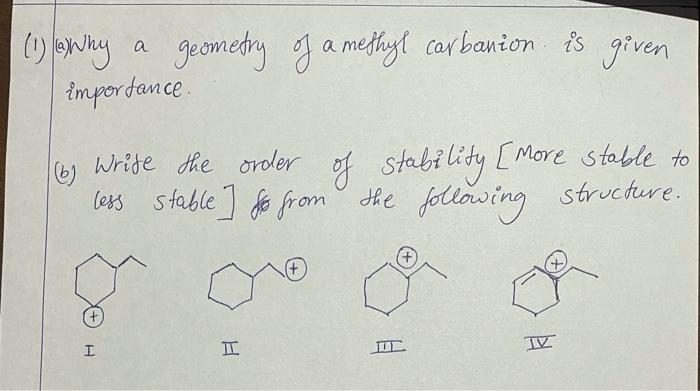 (1) (a) Why a geometry of a methyl carbanion is given
importance.
(b) Write the order of stability [More stable to
less stable] from the following structure.
+ + + +
I II III IV